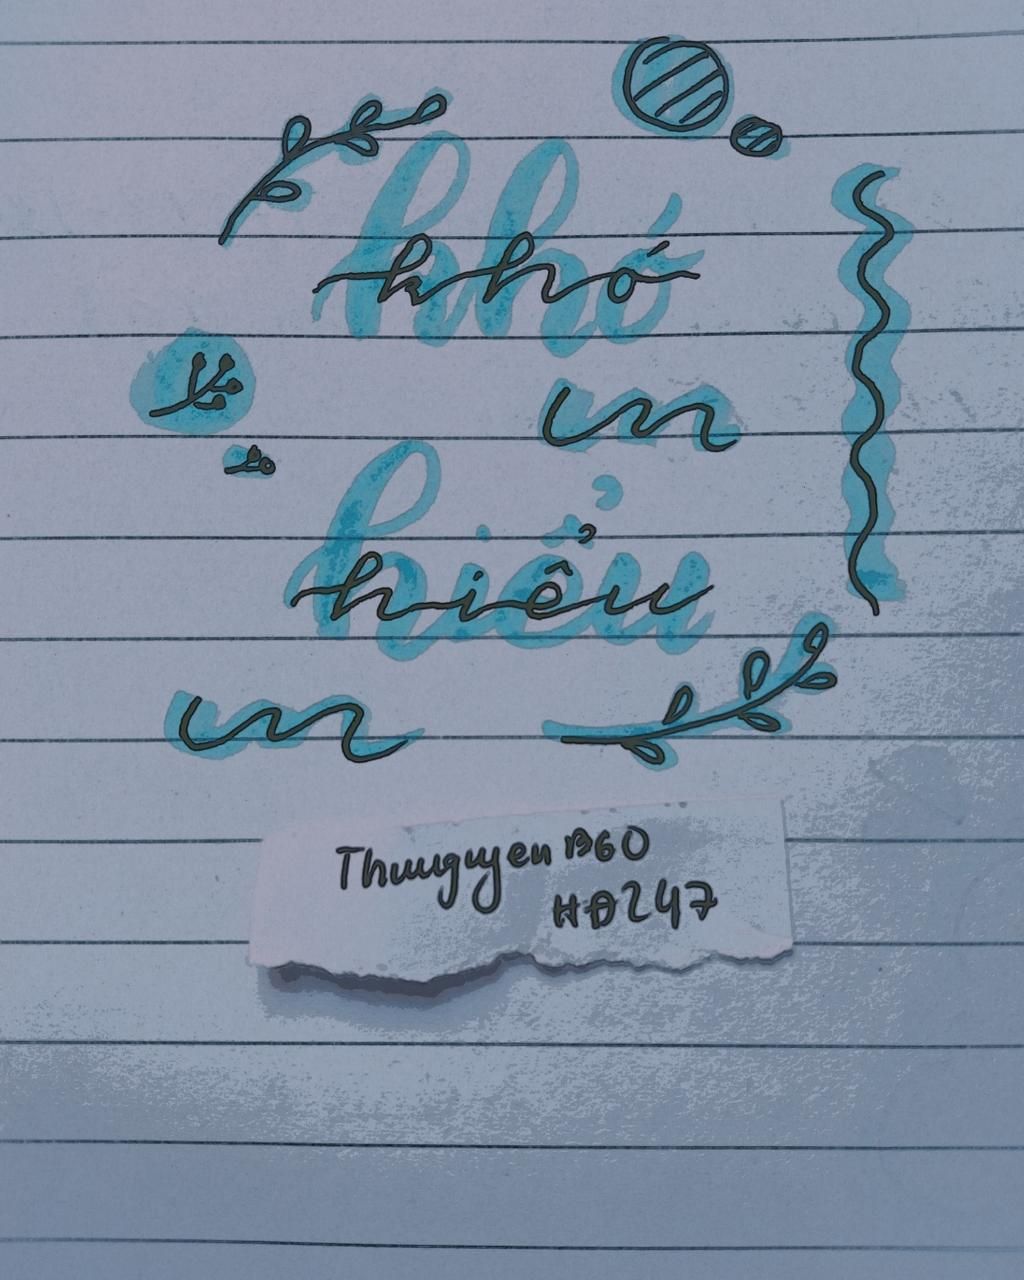 khó
hiểu
Thuuguyen B60
HĐ247